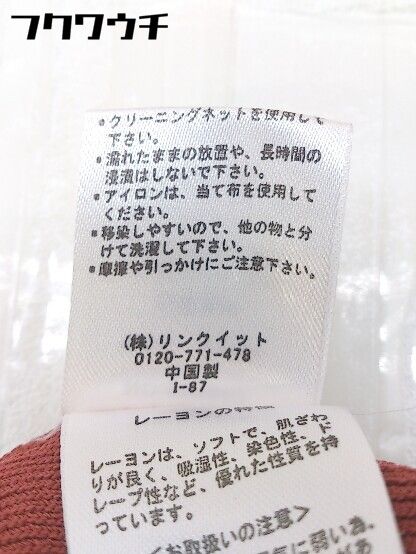 フクワウチ
•クリーニングネットを使用して
下さい。
•濡れたままの放置や、長時間の
浸漬はしないで下さい。
•アイロンは、当て布を使用して
ください。
•移染しやすいので、他の物と分
けて洗濯して下さい。
•摩擦や引っかけにご注意下さい。
(株)リンクイット
0120-771-478
中国製
I-87
レーヨンの特性
レーヨンは、ソフトで、肌ざわ
りが良く、吸湿性、染色性、ド
レープ性など、優れた性質を持
っています。
<お取扱いの注意>
気に弱い為、